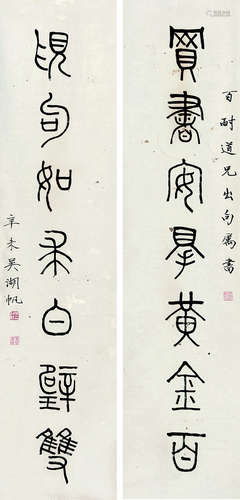 百耐道兄出句屬書
買書安得黃金百
覓句如求白璧雙
辛未吳湖帆